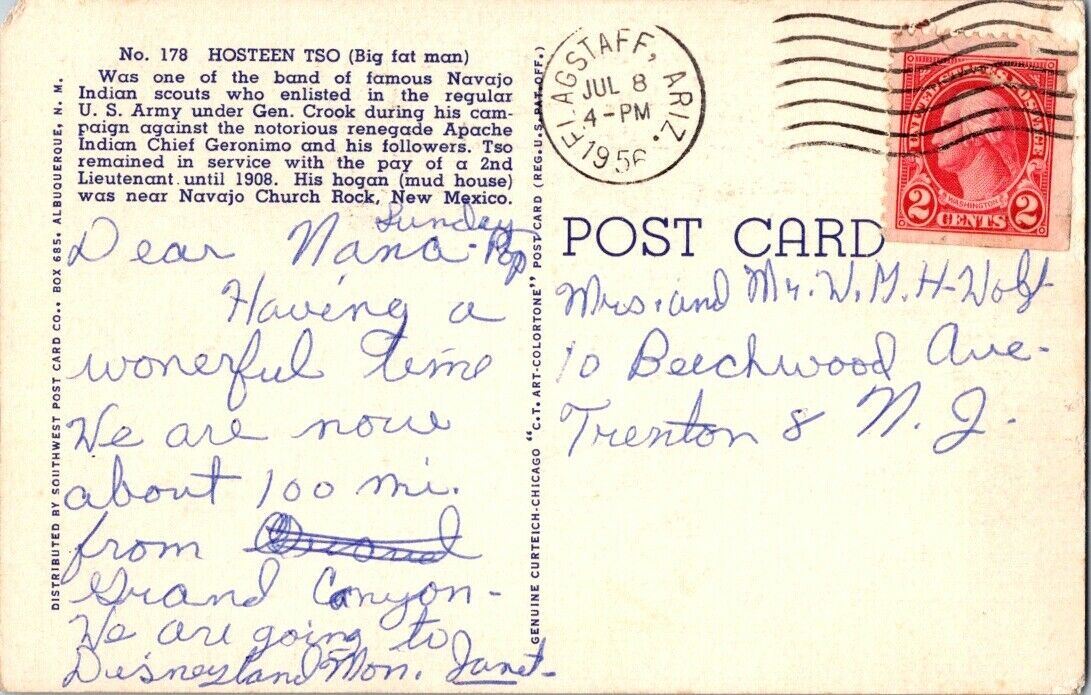 No. 178 HOSTEEN TSO (Big fat man)
Was one of the band of famous Navajo
Indian scouts who enlisted in the regular
U. S. Army under Gen. Crook during his cam-
paign against the notorious renegade Apache
Indian Chief Geronimo and his followers. Tso
remained in service with the pay of a 2nd
Lieutenant until 1908. His hogan (mud house)
was near Navajo Church Rock, New Mexico.
Sunday
Dear Nana-Pop
Having a
wonerful time
We are now
about 100 mi.
from
Grand Canyon-
We are going to
Disneyland Mon. Janet-
DISTRIBUTED BY SOUTHWEST POST CARD CO., BOX 685, ALBUQUERQUE, N. M.
GENUINE CURTEICH-CHICAGO "C.T. ART-COLORTONE" POST CARD (REG. U.S. PAT. OFF.)
FLAGSTAFF, ARIZ.
JUL 8
4-PM
1956
UNITED STATES POSTAGE
WASHINGTON
2 CENTS 2
POST CARD
Mrs. and Mr. W. H. Wolf
10 Beechwood Ave-
Trenton 8 N. J.